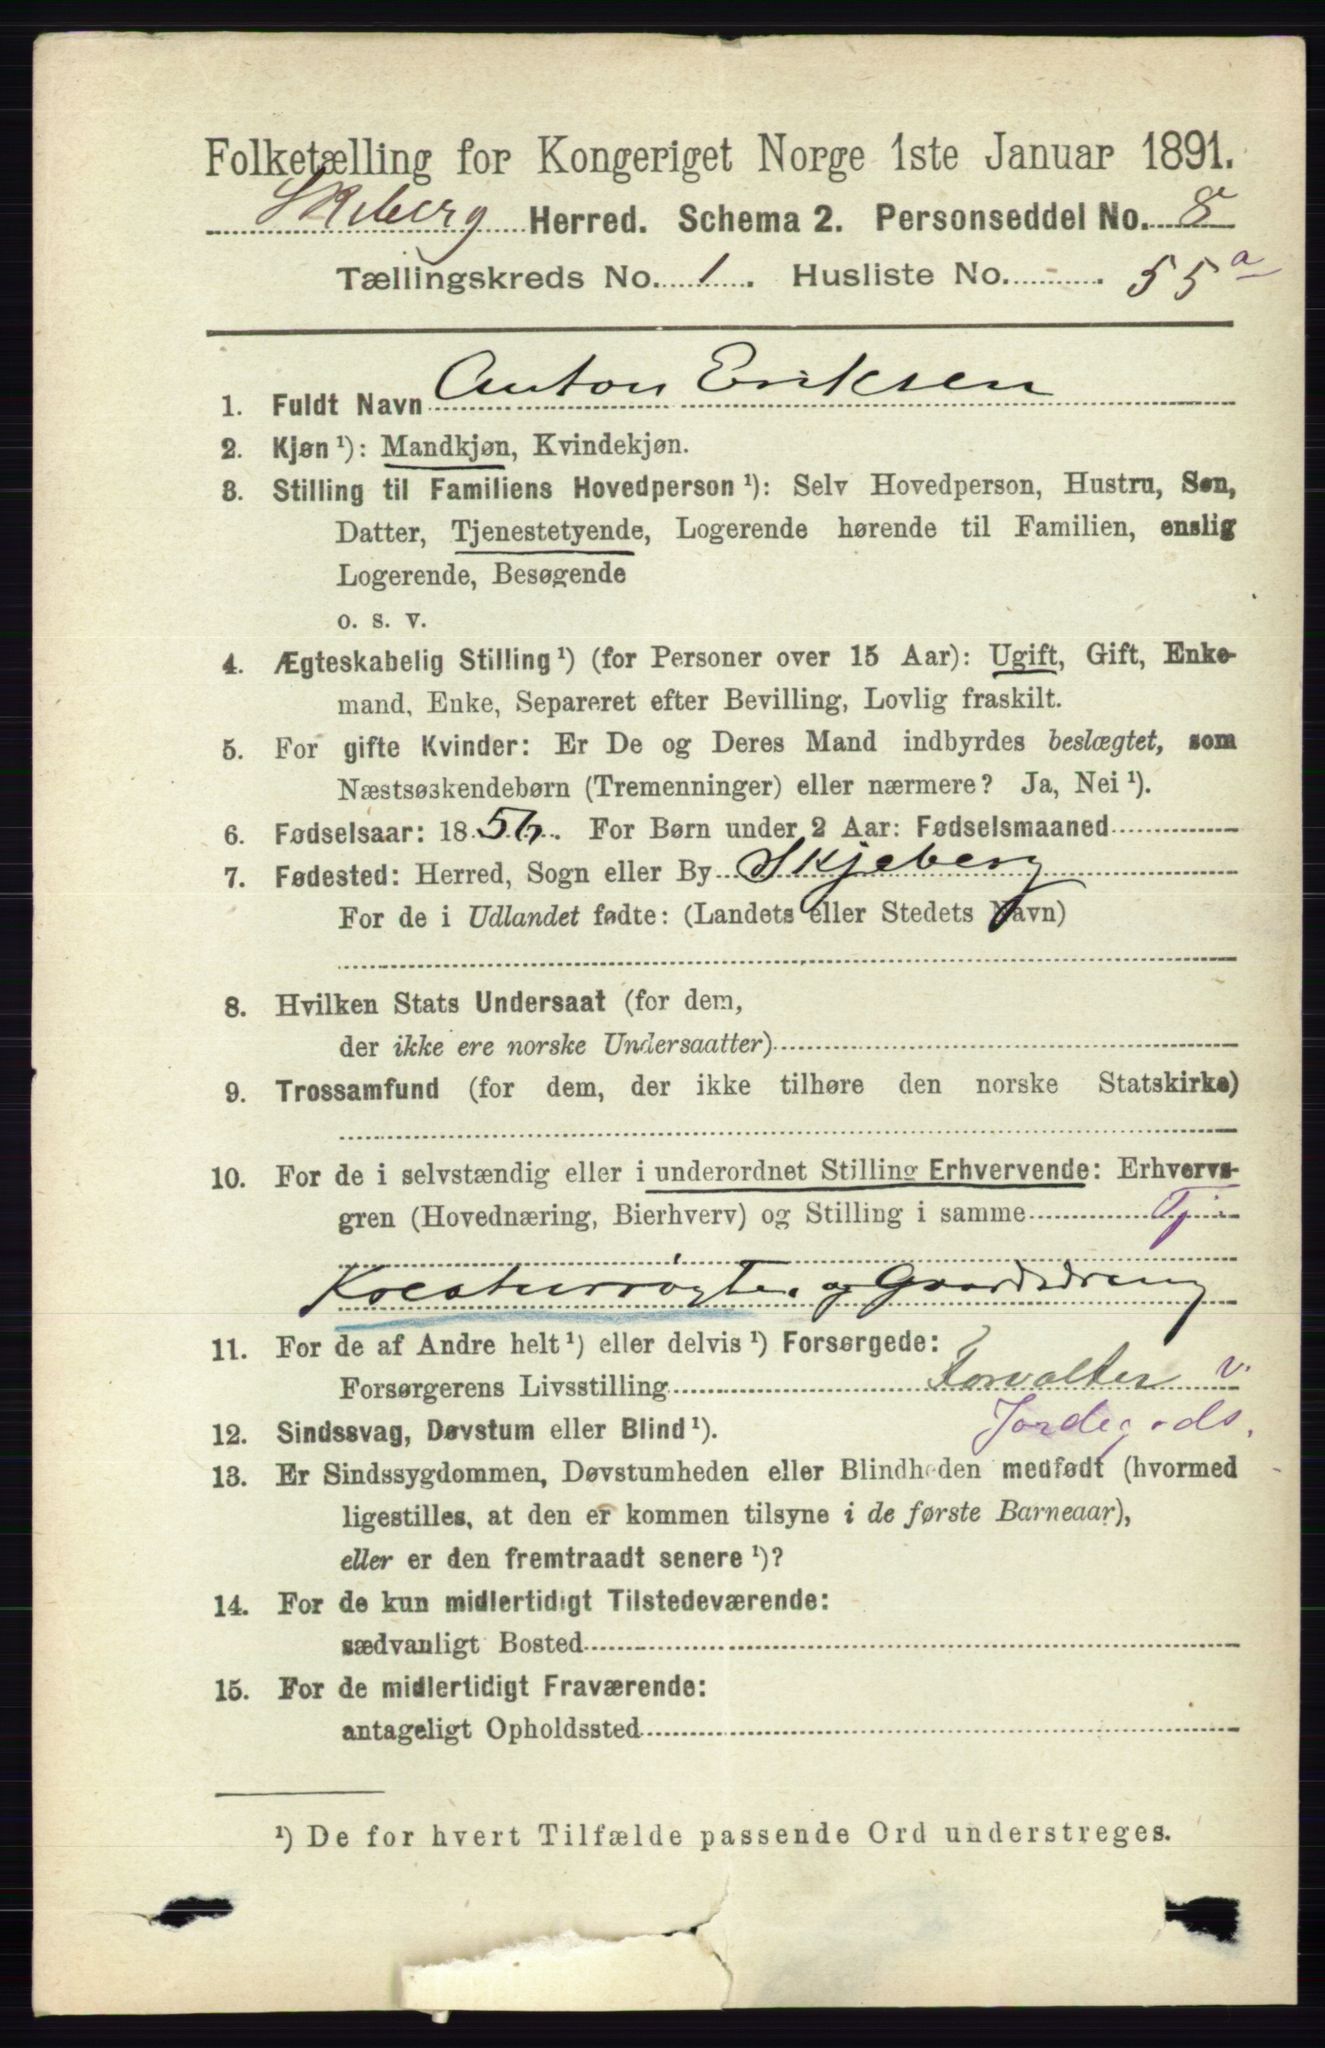 Folketælling for Kongeriget Norge 1ste Januar 1891.
Skeberg Herred. Schema 2. Personseddel No. 8
Tællingskreds No. 1. Husliste No. 55a
1. Fuldt Navn Anton Eriksen
2. Kjøn ¹): Mandkjøn, Kvindekjøn.
3. Stilling til Familiens Hovedperson ¹): Selv Hovedperson, Hustru, Søn,
Datter, Tjenestetyende, Logerende hørende til Familien, enslig
Logerende, Besøgende
o. s. v.
4. Ægteskabelig Stilling ¹) (for Personer over 15 Aar): Ugift, Gift, Enke-
mand, Enke, Separeret efter Bevilling, Lovlig fraskilt.
5. For gifte Kvinder: Er De og Deres Mand indbyrdes beslægtet, som
Næstsøskendebørn (Tremenninger) eller nærmere? Ja, Nei ¹).
6. Fødselsaar: 1856. For Børn under 2 Aar: Fødselsmaaned
7. Fødested: Herred, Sogn eller By Skjeberg
For de i Udlandet fødte: (Landets eller Stedets Navn)
8. Hvilken Stats Undersaat (for dem,
der ikke ere norske Undersaatter)
9. Trossamfund (for dem, der ikke tilhøre den norske Statskirke)
10. For de i selvstændig eller i underordnet Stilling Erhvervende: Erhvervs-
gren (Hovednæring, Bierhverv) og Stilling i samme Tj.
Kreaturrøgter og Gaardsdreng
11. For de af Andre helt ¹) eller delvis ¹) Forsørgede:
Forsørgerens Livsstilling Forvalter v.
Jordegods.
12. Sindssvag, Døvstum eller Blind ¹).
13. Er Sindssygdommen, Døvstumheden eller Blindheden medfødt (hvormed
ligestilles, at den er kommen tilsyne i de første Barneaar),
eller er den fremtraadt senere ¹)?
14. For de kun midlertidigt Tilstedeværende:
sædvanligt Bosted
15. For de midlertidigt Fraværende:
antageligt Opholdssted
¹) De for hvert Tilfælde passende Ord understreges.